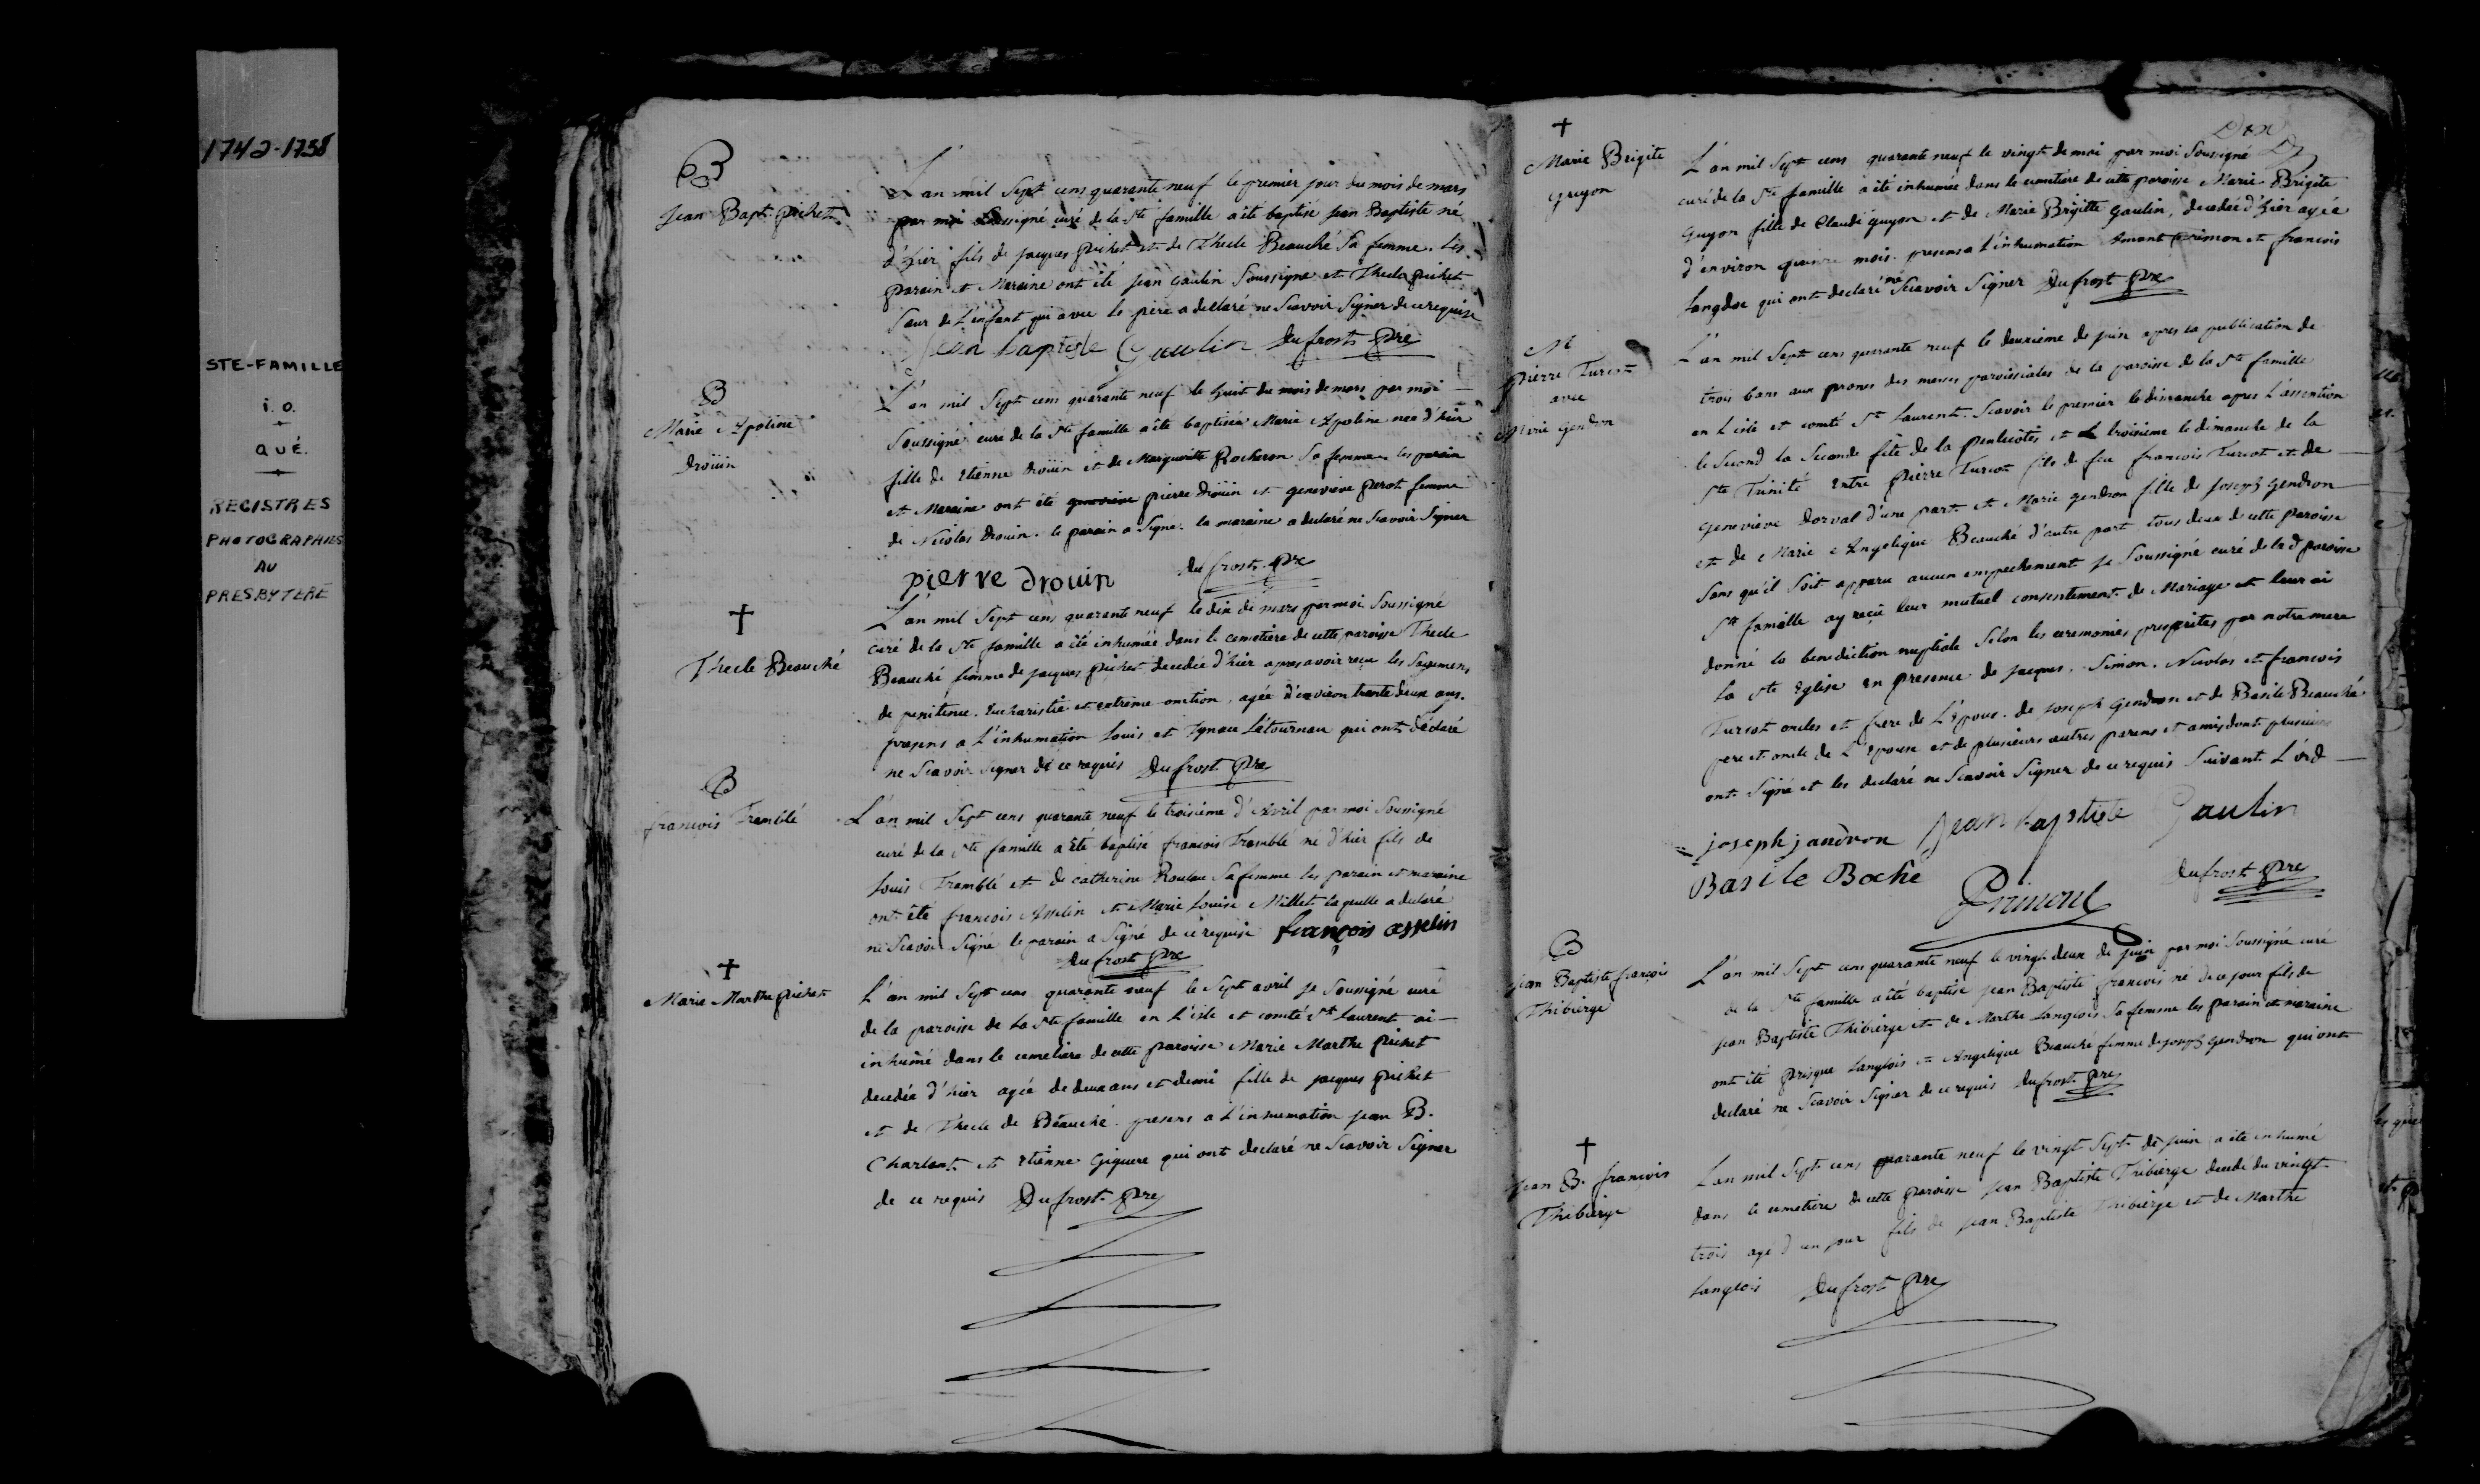 1742-1758
STE-FAMILLE
i. o.
QUÉ.
REGISTRES
PHOTOGRAPHIES
AU
PRESBYTERE
B
Jean Bapt. pichet
L'an mil Sept cens quarante neuf le premier jour du mois de mars
par moi Soussigné curé de la Ste famille a été baptisé Jean Baptiste né
d'hier fils de jacques pichet et de Thecle Beauché Sa femme. Les
parain et Maraine ont été jean Gaulin Soussigné et Thecle pichet
Sœur de L'enfant qui avec le père a declaré ne Scavoir Signer de ce requise
Jean baptiste Gaulin Dufrost Pre
B
Marie Apoline
Droüin
L'an mil Sept cens quarante neuf le huit du mois de mars par moi
Soussigné curé de la Ste famille a été baptiséé Marie Apoline née d'hier
fille de Etienne Droüin et de Marguerite Rocheron Sa femme les parain
et Maraine ont été genevieve pierre Droüin et genevieve perot femme
de Nicolas Drouin. le parain a Signé. la maraine a declaré ne Scavoir Signer
pierre drouin Dufrost Pre
†
Thecle Beauché
L'an mil Sept cens quarante neuf le dix de mars par moi Soussigné
curé de la Ste famille a été inhumée dans le cemetiere de cette paroisse Thecle
Beauché femme de jacques pichet decedée d'hier apres avoir reçu les Sacremens
de penitence. Eucharistie et extrême-onction, agée d'environ trente deux ans.
presens a L'inhumation Louis et Ignace Létourneau qui ont déclaré
ne Scavoir Signer de ce requis Dufrost Pre
B
françois Tremblé
L'an mil Sept cens quarante neuf le troisieme d'Avril par moi Soussigné
curé de la Ste famille a été baptisé francois Tremblé né d'hier fils de
Louis Tremblé et de catherine Rouleau Sa femme les parain et maraine
ont été francois Asselin et Marie Louise Millet laquelle a declaré
ne Scavoir Signé le parain a Signé de ce requise françois asselin
Dufrost Pre
†
Marie Marthe pichet
L'an mil Sept cens quarante neuf le Sept avril je Soussigné curé
de la paroisse de la Ste famille en L'isle et comté St Laurent ai
inhumé dans le cemetiere de cette paroisse Marie Marthe pichet
decedée d'hier agée de deux ans et demi fille de jacques pichet
et de Thecle de Beauché. presens a L'inhumation jean B.
Charlant et Etienne Giguere qui ont declaré ne Scavoir Signer
de ce requis Dufrost Pre
†
Marie Brigite
guyon
L'an mil Sept cens quarante neuf le vingt de mai par moi Soussigné
curé de la Ste famille a été inhumée dans le cemetiere de cette paroisse Marie Brigite
Guyon fille de Claude guyon et de Marie Brigitte Gaulin, decedée d'hier agée
d'environ mois. presens a L'inhumation Amant et francois
Langdoc qui ont declaré ne Scavoir Signer Dufrost Pre
M
pierre Turcot
avec
Marie Gendron
L'an mil Sept cens quarante neuf le deuxieme de juin apres la publication de
trois bans aux prones des messes paroissiales de la paroisse de la Ste famille
en L'isle et comté St Laurent. Scavoir le premier le dimanche apres L'assention
le Second la Seconde fête de la pentecôtes et le troisieme le dimanche de la
Ste Trinité Entre pierre Turcot fils de feu francois Turcot et de
Genevieve Dorval d'une part et Marie gendron fille de Joseph Gendron
et de Marie Angelique Beauché d'autre part tous deux de cette paroisse
Sans qu'il Soit apparu aucun empechement je Soussigné curé de la d paroisse
Ste famille ay reçu leur mutuel consentement de Mariage et leur ai
donné la benediction nuptiale Selon les ceremonies prescrites par notre mere
la Ste Eglise en presence de jacques. Simon. Nicolas et francois
Turcot oncles et frere de L'Epoux. de Joseph Gendron et de Basile Beauché
pere et oncle de L'Epouse et de plusieurs autres parens et amis dont plusieurs
ont Signé et les declaré ne Scavoir Signer de ce requis Suivant L'ord
joseph jandron Jean baptiste Gaulin
Basile Boché
Primont
Dufrost Pre
B
Jean Baptiste françois
Thibierge
L'an mil Sept cens quarante neuf le vingt deux de juin par moi Soussigné curé
de la Ste famille a été baptisé jean Baptiste francois né de ce jour fils de
jean Baptiste Thibierge et de Marthe Langlois Sa femme les parain et maraine
ont été prisque Langlois et Angelique Beauché femme de joseph Gendron qui ont
declaré ne Scavoir Signer de ce requis Dufrost Pre
†
Jean B. francois
Thibierge
L'an mil Sept cens quarante neuf le vingt Sept de juin a été inhumé
dans le cemetiere de cette paroisse jean Baptiste Thibierge decedé du vingt
trois agé d'un jour fils de jean Baptiste Thibierge et de Marthe
Langlois Dufrost Pre